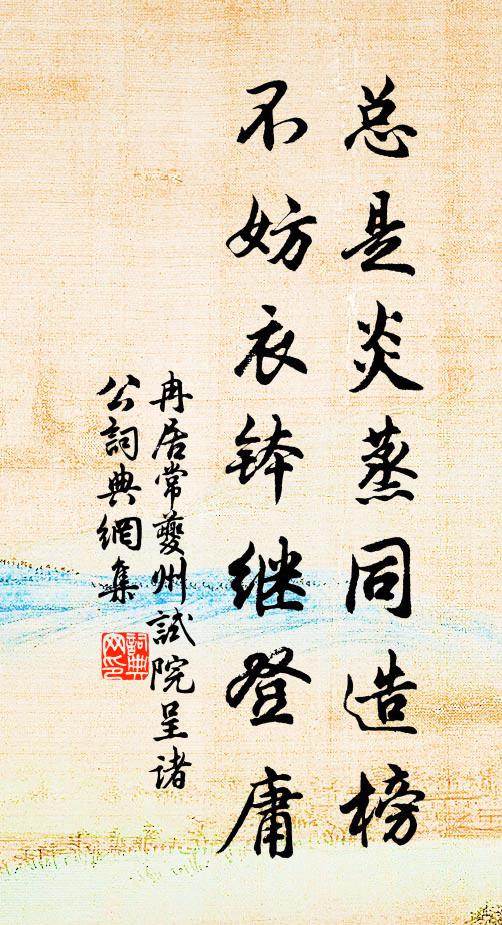 总是炎蒸同造榜
不妨衣钵继登庸
冉居常夔州試院呈诸
公詞典網集
詞典网印